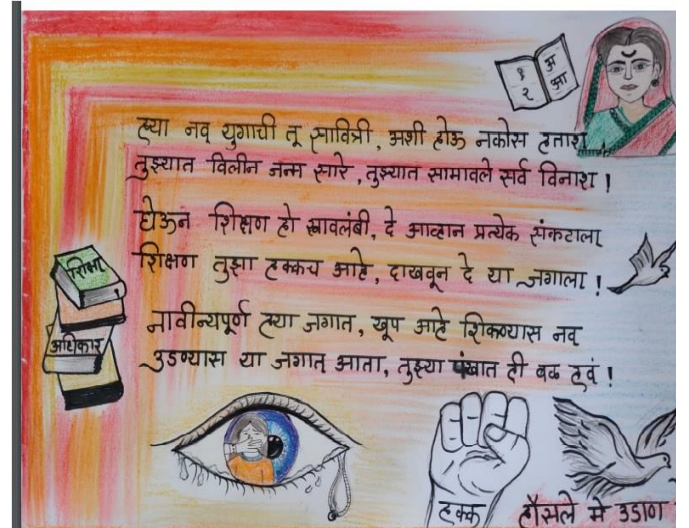 १ अ
२ आ
ह्या नव युगाची तू सावित्री, अशी होऊ नकोस हताश,
तुझ्यात विलीन जन्म सारे, तुझ्यात सामावले सर्व विनाश !
घेऊन शिक्षण हो स्वावलंबी, दे आव्हान प्रत्येक संकटाला
शिक्षण तुझा हक्कच आहे, दाखवून दे या जगाला !
नावीन्यपूर्ण ह्या जगात, खूप आहे शिकण्यास नव
उडण्यास या जगात आता, तुझ्या पंखात ही बळ हवं !
शिक्षा
अधिकार
हक्क
हौसले मे उडाण